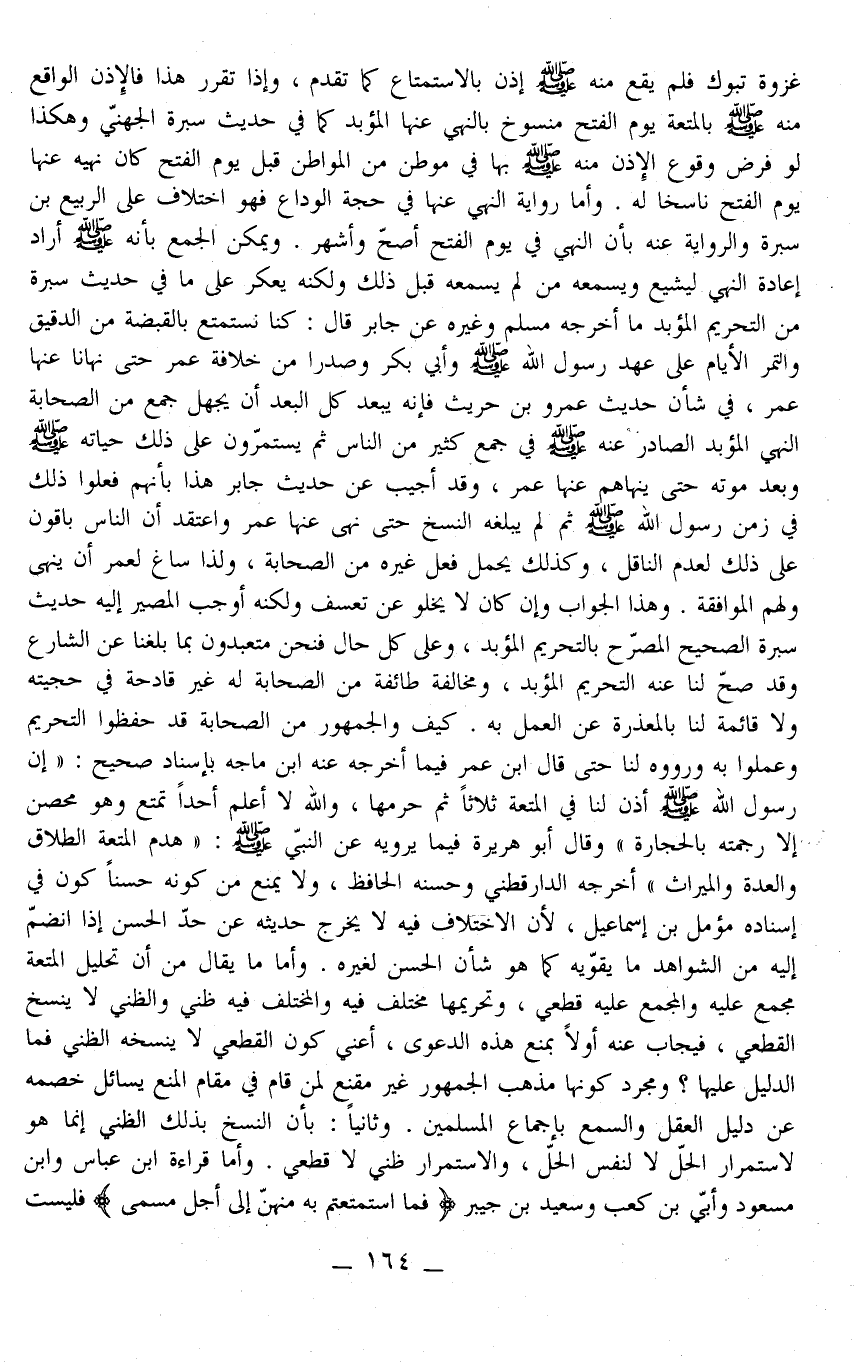 غزوة تبوك فلم يقع منه ﷺ إذن بالاستمتاع كما تقدم ، وإذا تقرر هذا فالإذن الواقع
منه ﷺ بالمتعة يوم الفتح منسوخ بالنهي عنها المؤبد كما في حديث سبرة الجهنيّ وهكذا
لو فرض وقوع الإذن منه ﷺ بها في موطن من المواطن قبل يوم الفتح كان نهيه عنها
يوم الفتح ناسخا له . وأما رواية النهي عنها في حجة الوداع فهو اختلاف على الربيع بن
سبرة والرواية عنه بأن النهي في يوم الفتح أصحّ وأشهر . ويمكن الجمع بأنه ﷺ أراد
إعادة النهي ليشيع ويسمعه من لم يسمعه قبل ذلك ولكنه يعكر على ما في حديث سبرة
من التحريم المؤبد ما أخرجه مسلم وغيره عن جابر قال : كنا نستمتع بالقبضة من الدقيق
والتمر الأيام على عهد رسول الله ﷺ وأبي بكر وصدرا من خلافة عمر حتى نهانا عنها
عمر ، في شأن حديث عمرو بن حريث فإنه يبعد كل البعد أن يجهل جمع من الصحابة
النهي المؤبد الصادر عنه ﷺ في جمع كثير من الناس ثم يستمرّون على ذلك حياته ﷺ
وبعد موته حتى ينهاهم عنها عمر ، وقد أجيب عن حديث جابر هذا بأنهم فعلوا ذلك
في زمن رسول الله ﷺ ثم لم يبلغه النسخ حتى نهى عنها عمر واعتقد أن الناس باقون
على ذلك لعدم الناقل ، وكذلك يحمل فعل غيره من الصحابة ، ولذا ساغ لعمر أن ينهى
ولهم الموافقة . وهذا الجواب وإن كان لا يخلو عن تعسف ولكنه أوجب المصير إليه حديث
سبرة الصحيح المصرّح بالتحريم المؤبد ، وعلى كل حال فنحن متعبدون بما بلغنا عن الشارع
وقد صحّ لنا عنه التحريم المؤبد ، ومخالفة طائفة من الصحابة له غير قادحة في حجيته
ولا قائمة لنا بالمعذرة عن العمل به . كيف والجمهور من الصحابة قد حفظوا التحريم
وعملوا به ورووه لنا حتى قال ابن عمر فيما أخرجه عنه ابن ماجه بإسناد صحيح : « إن
رسول الله ﷺ أذن لنا في المتعة ثلاثاً ثم حرمها ، والله لا أعلم أحداً تمتع وهو محصن
إلا رجمته بالحجارة » وقال أبو هريرة فيما يرويه عن النبيّ ﷺ : « هدم المتعة الطلاق
والعدة والميراث » أخرجه الدارقطني وحسنه الحافظ ، ولا يمنع من كونه حسناً كون في
إسناده مؤمل بن إسماعيل ، لأن الاختلاف فيه لا يخرج حديثه عن حدّ الحسن إذا انضمّ
إليه من الشواهد ما يقوّيه كما هو شأن الحسن لغيره . وأما ما يقال من أن تحليل المتعة
مجمع عليه والمجمع عليه قطعي ، وتحريمها مختلف فيه والمختلف فيه ظني والظني لا ينسخ
القطعي ، فيجاب عنه أولاً بمنع هذه الدعوى ، أعني كون القطعي لا ينسخه الظني فما
الدليل عليها ؟ ومجرد كونها مذهب الجمهور غير مقنع لمن قام في مقام المنع يسائل خصمه
عن دليل العقل والسمع بإجماع المسلمين . وثانياً : بأن النسخ بذلك الظني إنما هو
لاستمرار الحلّ لا لنفس الحلّ ، والاستمرار ظني لا قطعي . وأما قراءة ابن عباس وابن
مسعود وأبيّ بن كعب وسعيد بن جيبر ﴿ فما استمتعتم به منهنّ إلى أجل مسمى ﴾ فليست
— ١٦٤ —